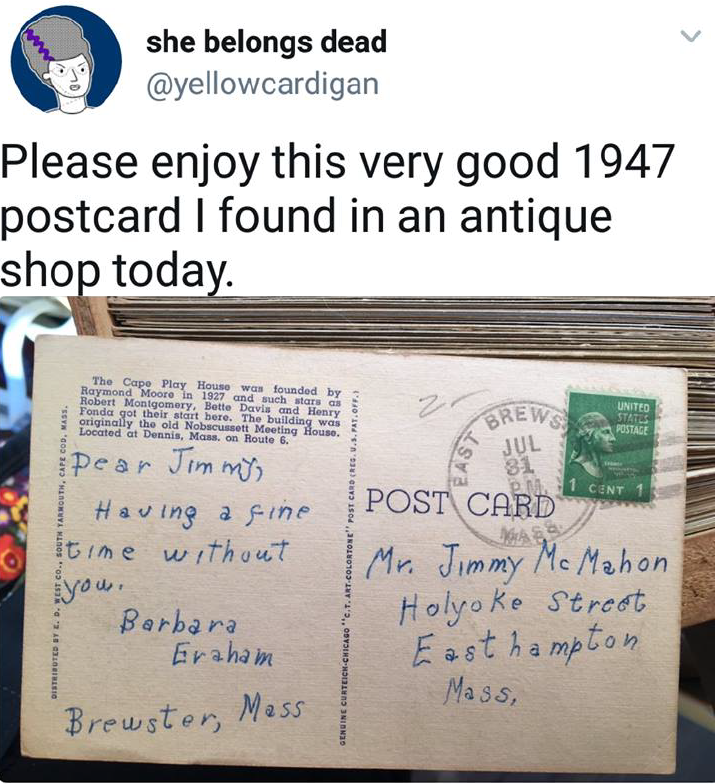 she belongs dead
@yellowcardigan
Please enjoy this very good 1947
postcard I found in an antique
shop today.
The Cape Play House was founded by
Raymond Moore in 1927 and such stars as
Robert Montgomery, Bette Davis and Henry
Fonda got their start here. The building was
originally the old Nobscussett Meeting House.
Located at Dennis, Mass. on Route 6.
Dear Jimmy,
Having a fine
time without
you.
Barbara
Eraham
Brewster, Mass
DISTRIBUTED BY E. D. WEST CO., SOUTH YARMOUTH, CAPE COD, MASS.
GENUINE CURTEICH-CHICAGO "C.T. ART-COLORTONE" POST CARD (REG. U.S. PAT. OFF.)
EAST BREWS
JUL
31
P.M.
MASS.
UNITED
STATES
POSTAGE
1 CENT 1
POST CARD
Mr. Jimmy McMahon
Holyoke Street
Easthampton
Mass.